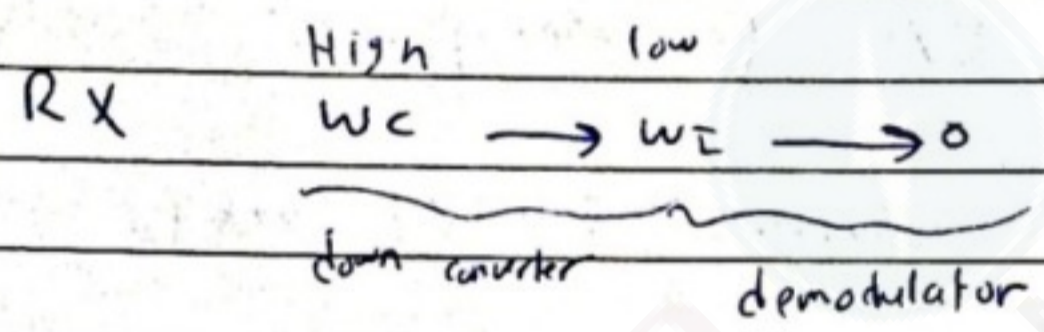 High low
RX WC → WI → 0
down converter
demodulator